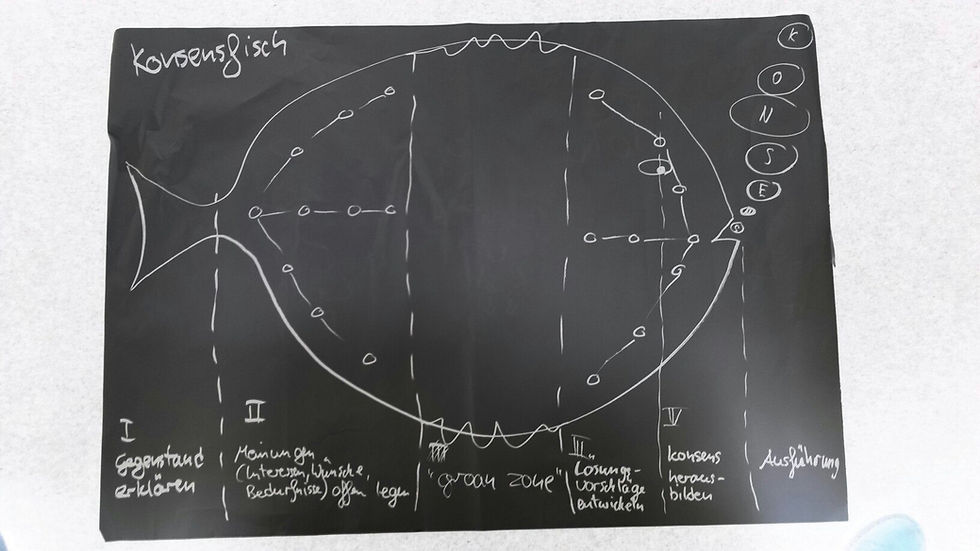 Konsensfisch
K
O
N
S
E
I
Gegenstand
erklären
II
Meinungen
(Interessen, Wünsche,
Bedürfnisse) offen legen
"groan zone"
III
Lösungs-
vorschläge
entwickeln
IV
konsens
heraus-
bilden
Ausführung